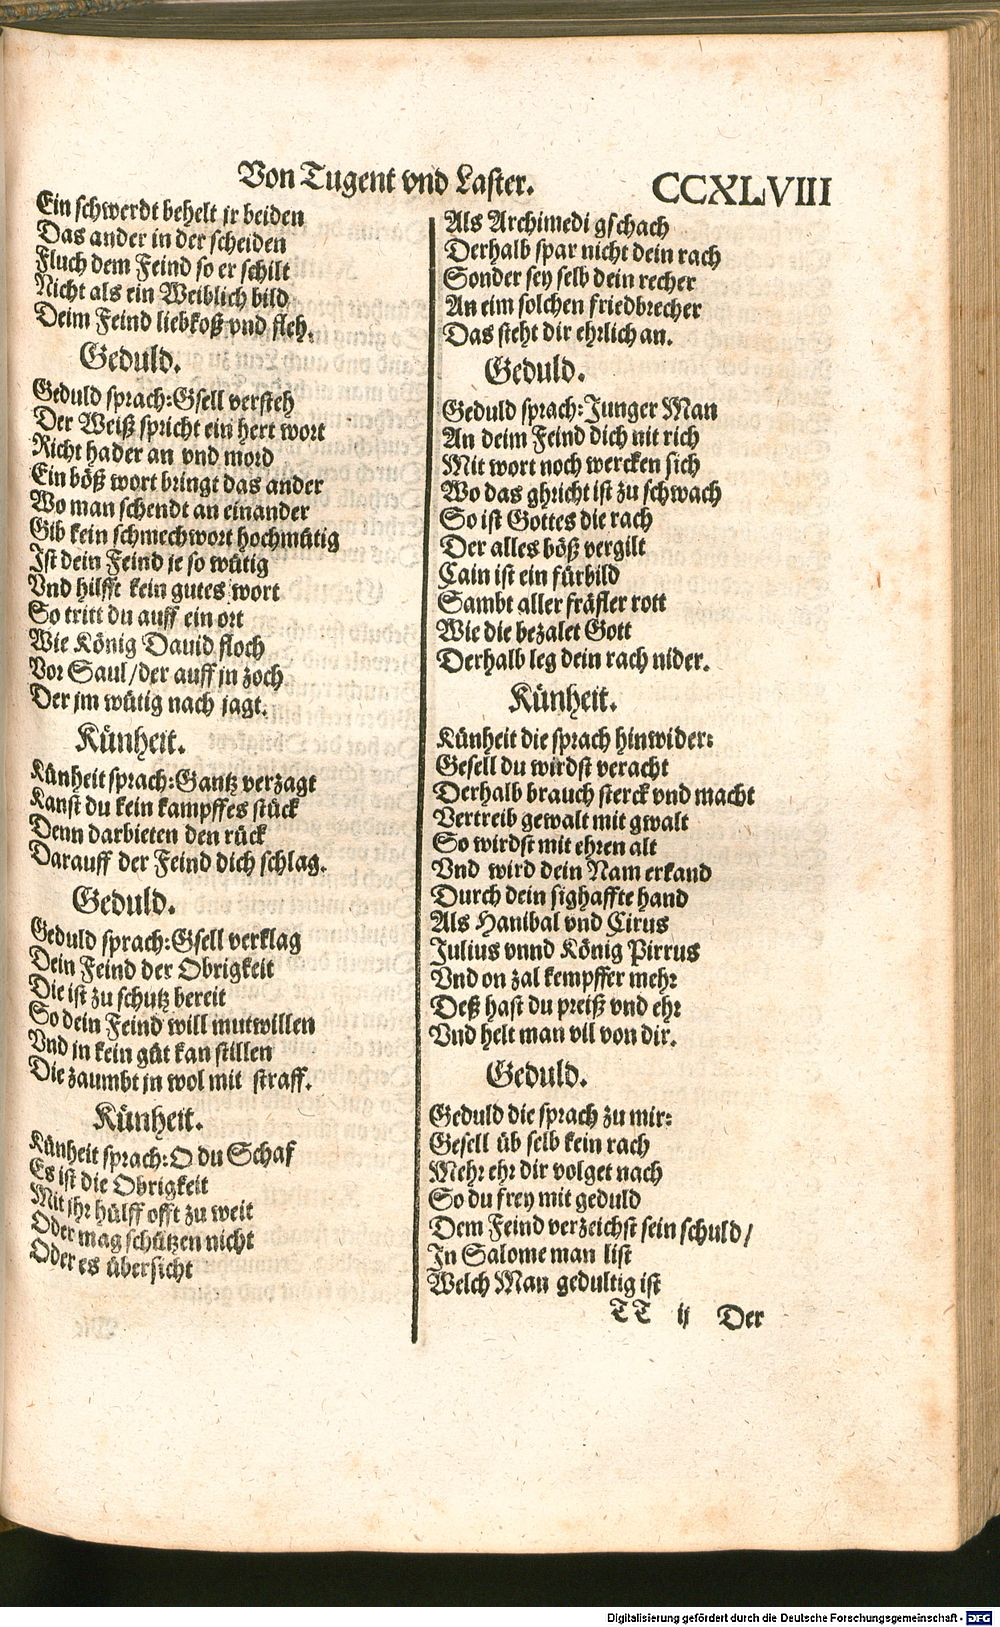 Von Tugent vnd Laster. CCXLVIII
Ein schwerdt behelt jr beiden
Das ander in der scheiden
Fluch dem Feind so er schilt
Nicht als ein Weiblich bild
Deim Feind liebkoß vnd fleh.
Geduld.
Geduld sprach: Gsell versteh
Der Weiß spricht ein hert wort
Richt hader an vnd mord
Ein böß wort bringt das ander
Wo man schendt an einander
Gib kein schmechwort hochmütig
Ist dein Feind je so wütig
Vnd hilfft kein gutes wort
So tritt du auff ein ort
Wie König Dauid floch
Vor Saul / der auff jn zoch
Der jm wütig nach jagt.
Künheit.
Künheit sprach: Gantz verzagt
Kanst du kein kampffes stück
Denn darbieten den rück
Darauff der Feind dich schlag.
Geduld.
Geduld sprach: Gsell verklag
Dein Feind der Obrigkeit
Die ist zu schutz bereit
So dein Feind will mutwillen
Vnd jn kein güt kan stillen
Die zaumbt jn wol mit straff.
Künheit.
Künheit sprach: O du Schaf
Es ist die Obrigkeit
Mit jhr hülff offt zu weit
Oder mag schützen nicht
Oder es übersicht
Als Archimedi gschach
Derhalb spar nicht dein rach
Sonder sey selb dein recher
An eim solchen friedbrecher
Das steht dir ehrlich an.
Geduld.
Geduld sprach: Junger Man
An deim Feind dich nit rich
Mit wort noch wercken sich
Wo das ghricht ist zu schwach
So ist Gottes die rach
Der alles böß vergilt
Cain ist ein fürbild
Sambt aller fräfler rott
Wie die bezalet Gott
Derhalb leg dein rach nider.
Künheit.
Künheit die sprach hinwider:
Gesell du wirdst veracht
Derhalb brauch sterck vnd macht
Vertreib gewalt mit gwalt
So wirdst mit ehren alt
Vnd wird dein Nam erkand
Durch dein sighaffte hand
Als Hanibal vnd Cirus
Julius vnnd König Pirrus
Vnd on zal kempffer mehr
Deß hast du preiß vnd ehr
Vnd helt man vil von dir.
Geduld.
Geduld die sprach zu mir:
Gesell üb selb kein rach
Mehr ehr dir volget nach
So du frey mit geduld
Dem Feind verzeichst sein schuld /
In Salome man list
Welch Man gedultig ist
TT ij Der
Digitalisierung gefördert durch die Deutsche Forschungsgemeinschaft - DFG